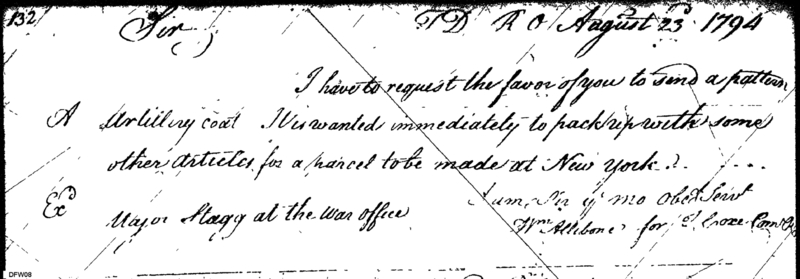 132
Sir, T D R O August 23d 1794
I have to request the favor of you to send a pattern
A Artillery coat It is wanted immediately to pack up with some
other articles for a parcel to be made at New York
Exd I am Sir yr mo Obed Servt
Major Stagg at the war office Wm Allibone for
DFW08